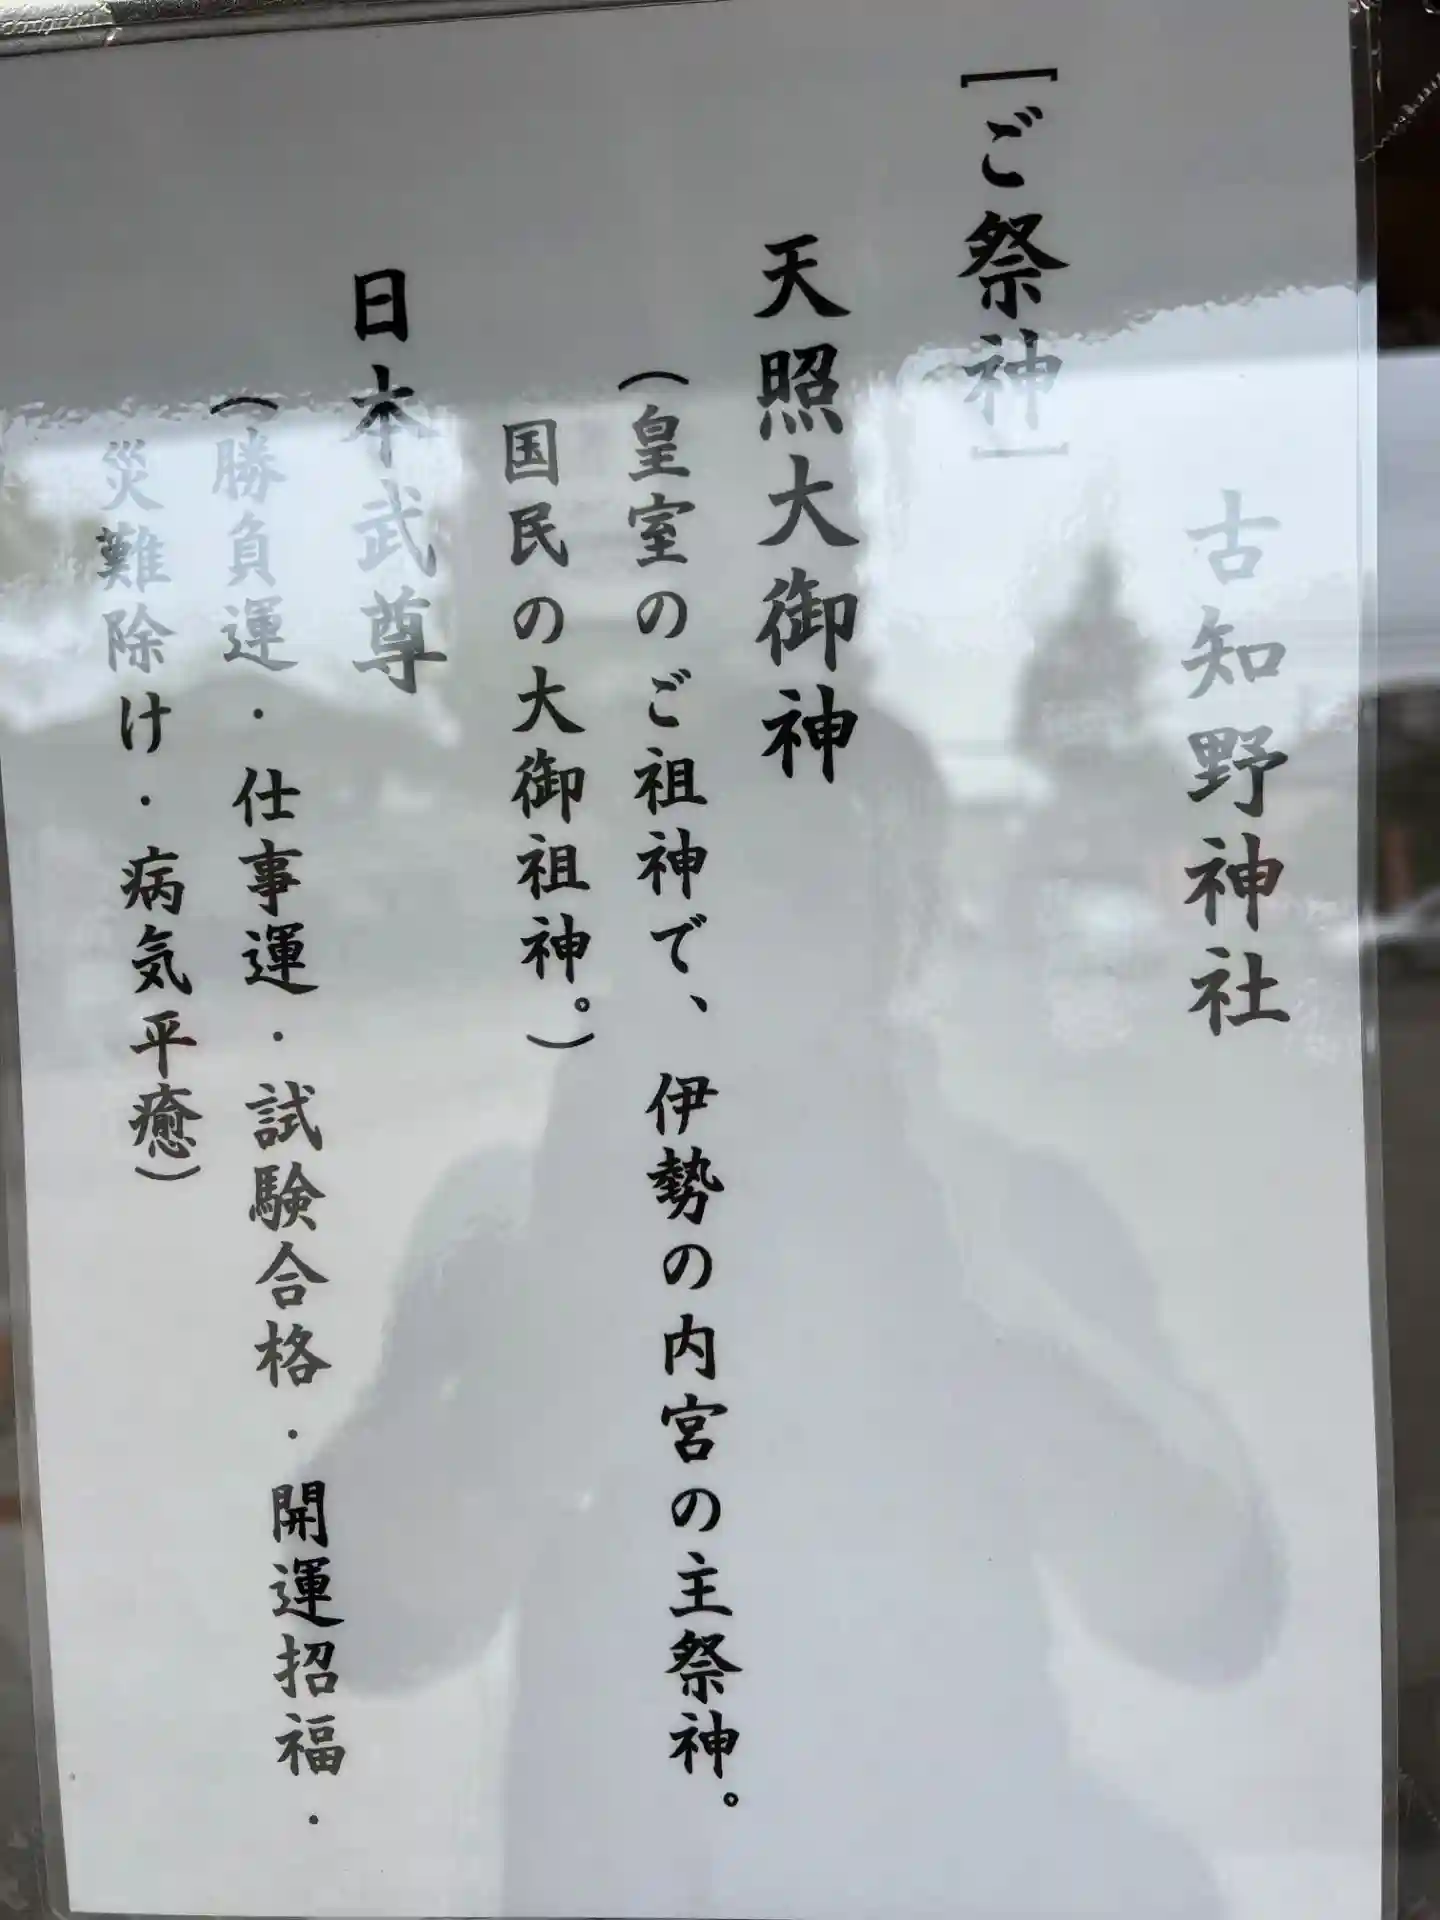 古知野神社
[ご祭神]
天照大御神
(皇室のご祖神で、伊勢の内宮の主祭神。
国民の大御祖神。)
日本武尊
(勝負運・仕事運・試験合格・開運招福・
災難除け・病気平癒)